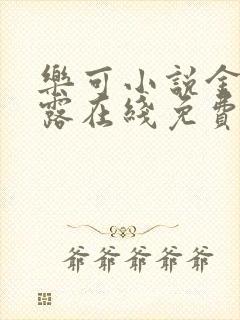 樂可小說金
露在綫免費
爺爺爺爺爺